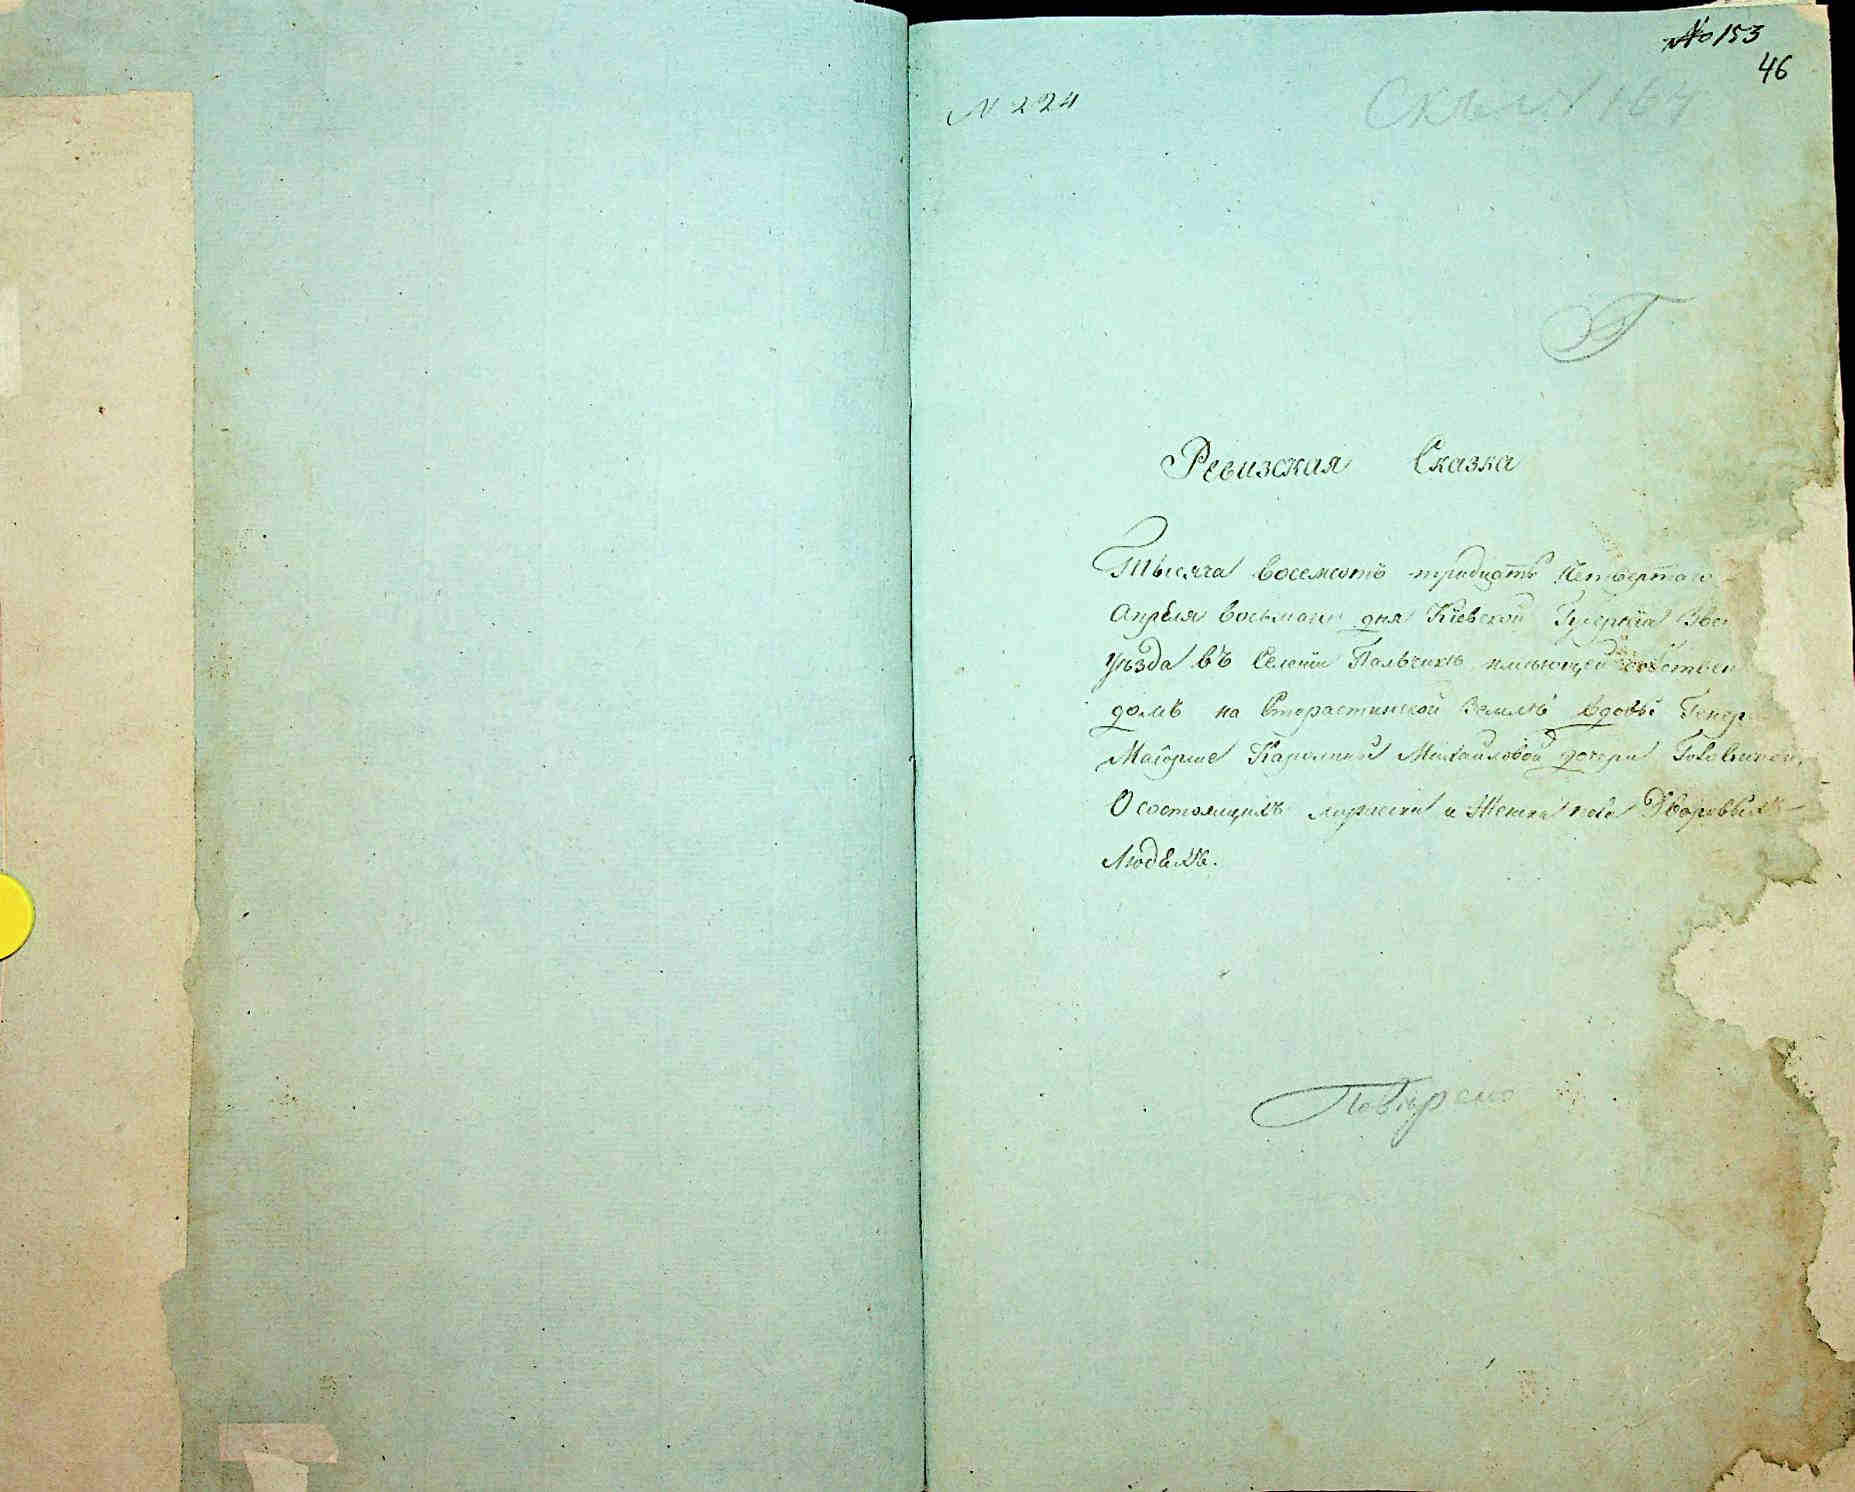 № 153
46
№ 224
Ревизская Сказка
Тысяча восемсотъ тридцать Четвертаго
Апреля восьмаго дня Кіевской Губерніи Зве
уѣзда въ Селеніи Пальчикѣ имѣющей собствен
домъ на Старостинской Землѣ вдовы Генер
Маіорше Каролины Михайловой дочери Головиной,
О состоящихъ мужеска и Женска пола Дворовыхъ
Людѣхъ.
Поверено